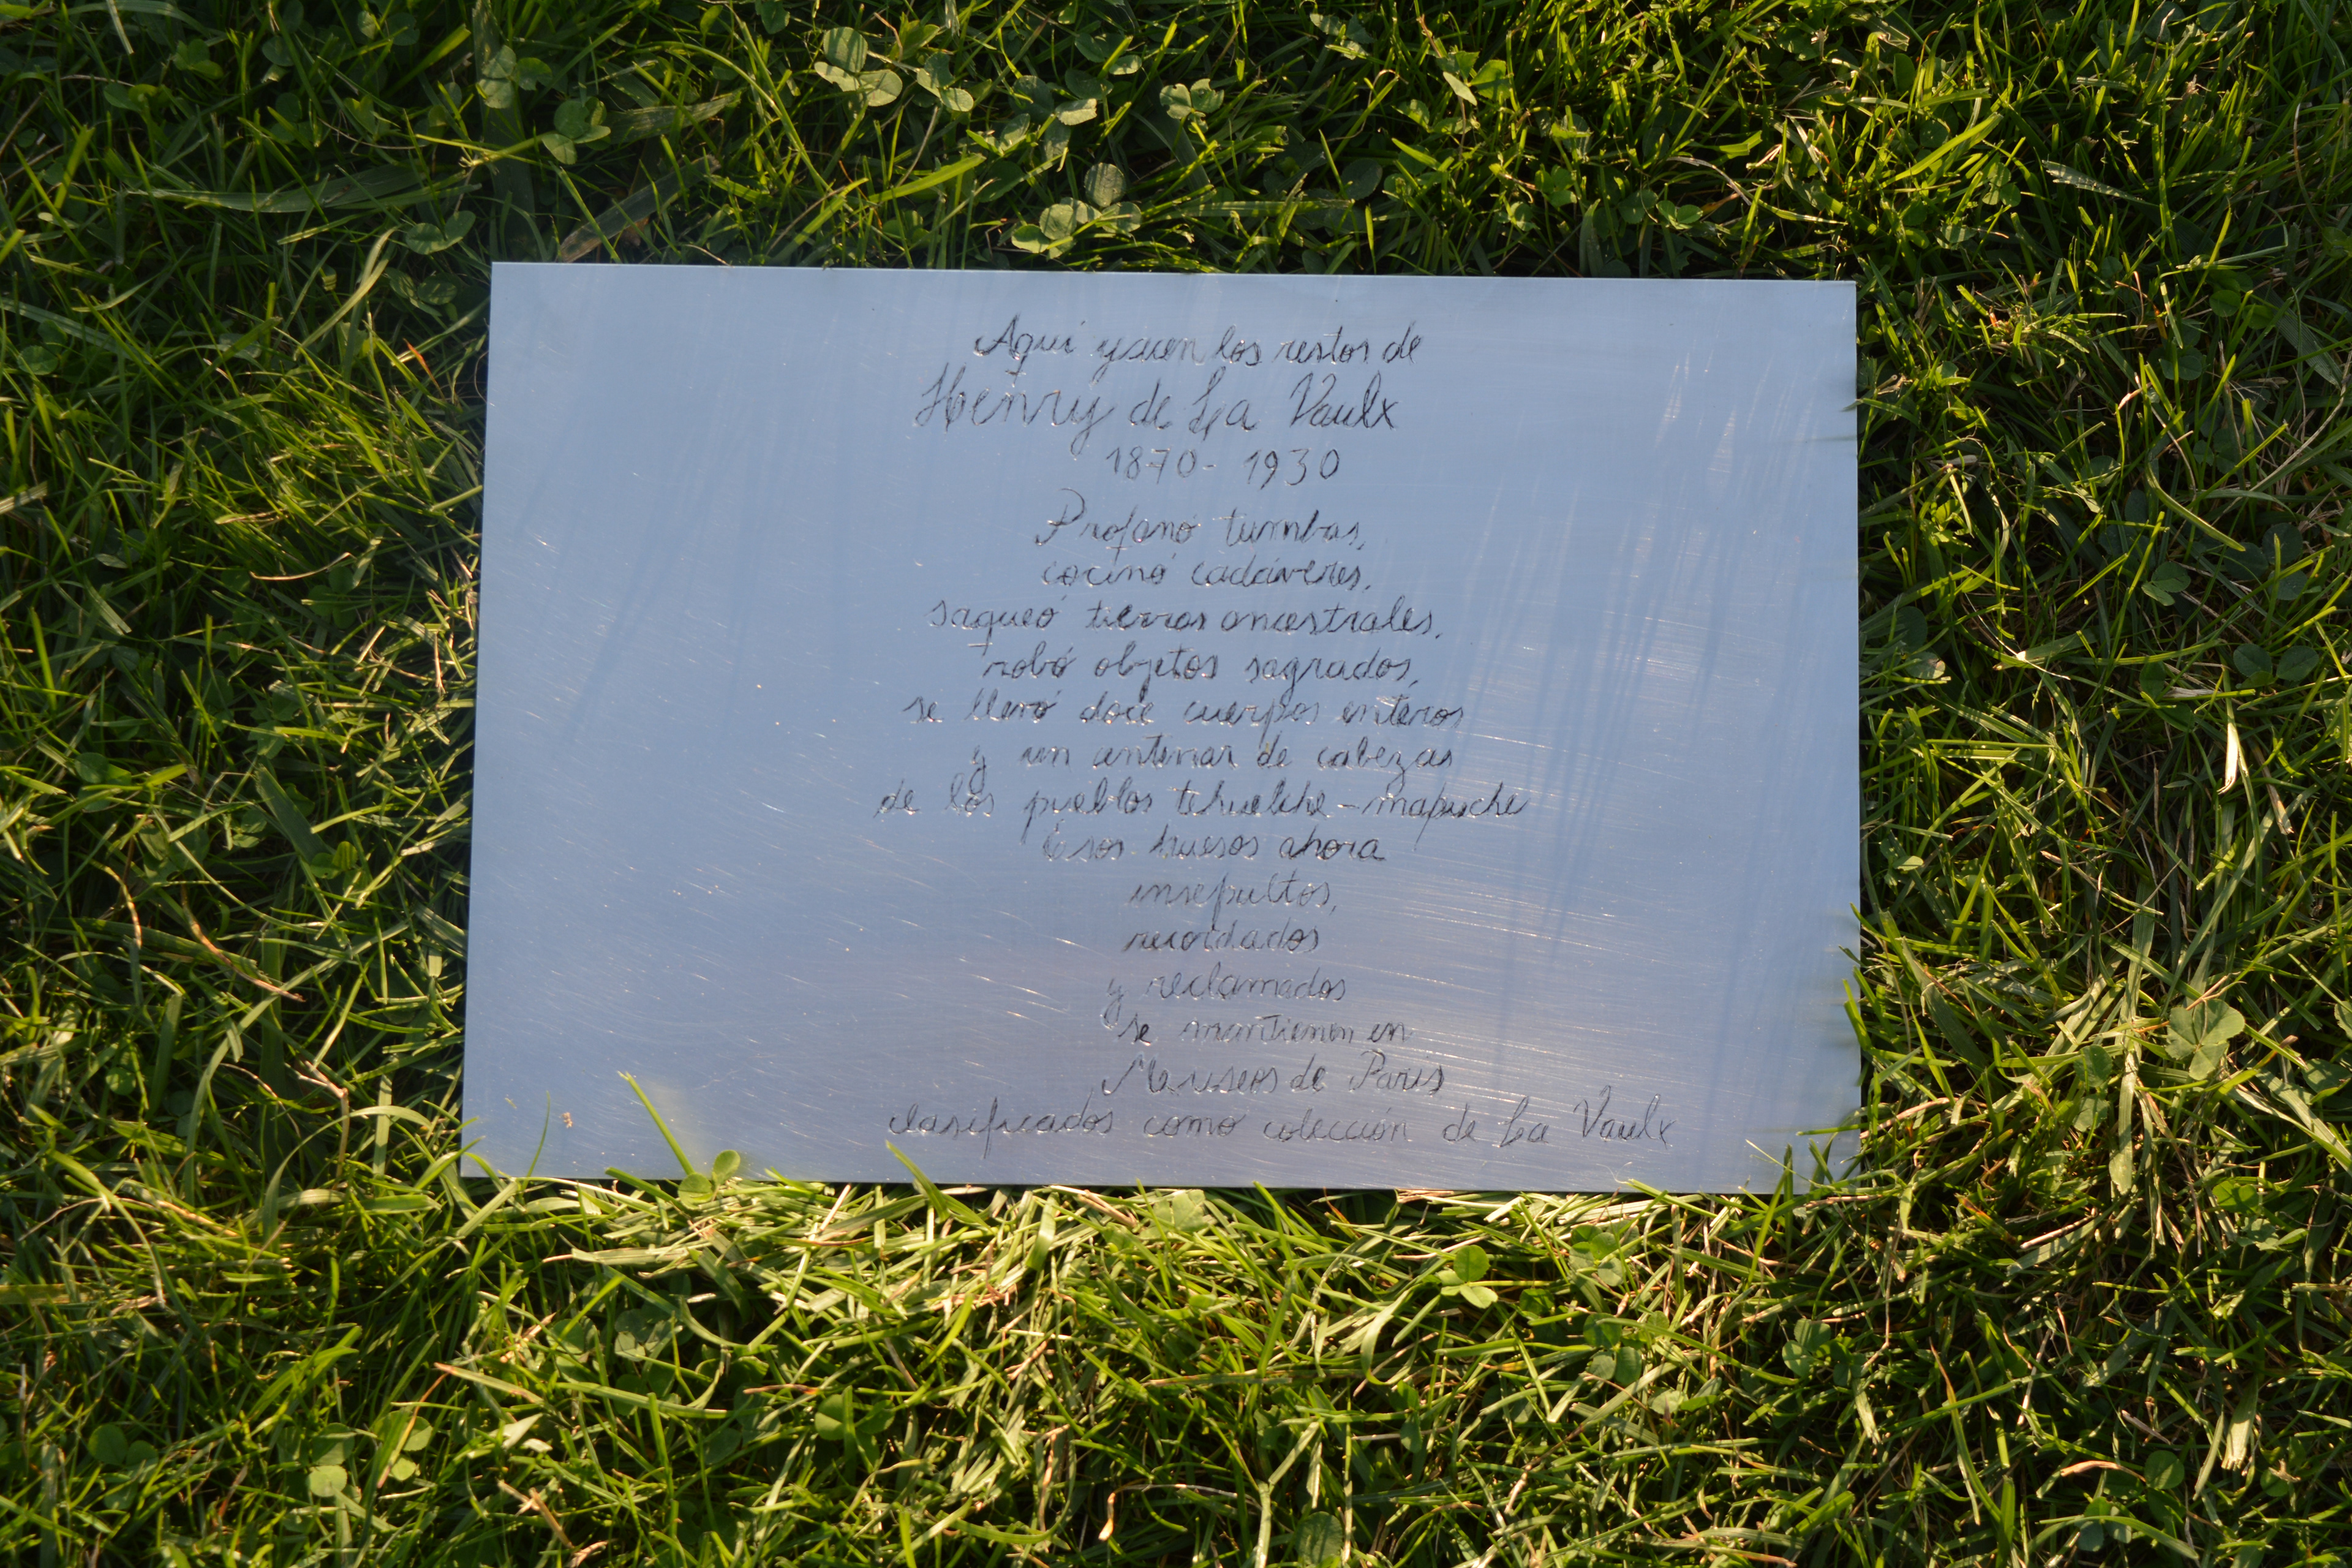 Aquí yacen los restos de
Henry de La Vaulx
1870 - 1930
Profanó tumbas,
cocinó cadáveres,
saqueó tierras ancestrales,
robó objetos sagrados,
se llevó doce cuerpos enteros
y un centenar de cabezas
de los pueblos tehuelche-mapuche
Esos huesos ahora
insepultos,
recordados
y reclamados
se mantienen en
Museos de París
clasificados como colección de La Vaulx